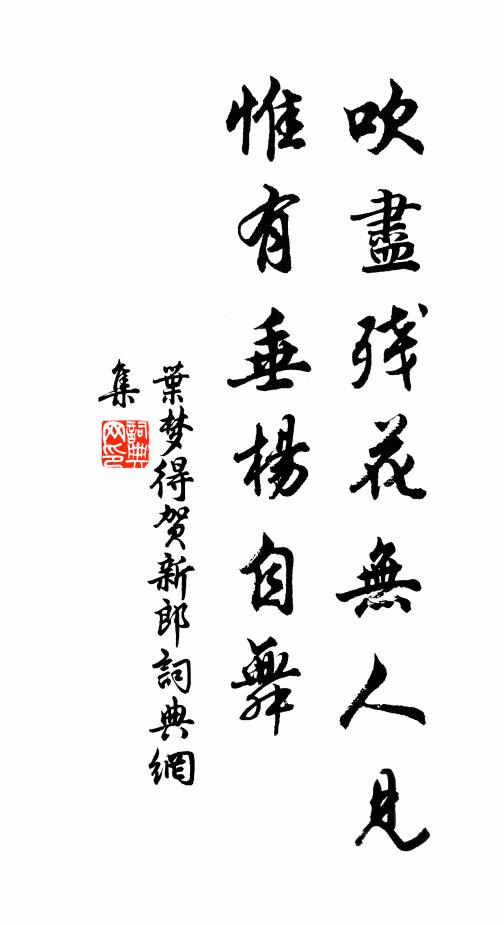 吹盡残花無人見
惟有垂楊自舞
葉梦得贺新郎詞典網
集
詞典
网印